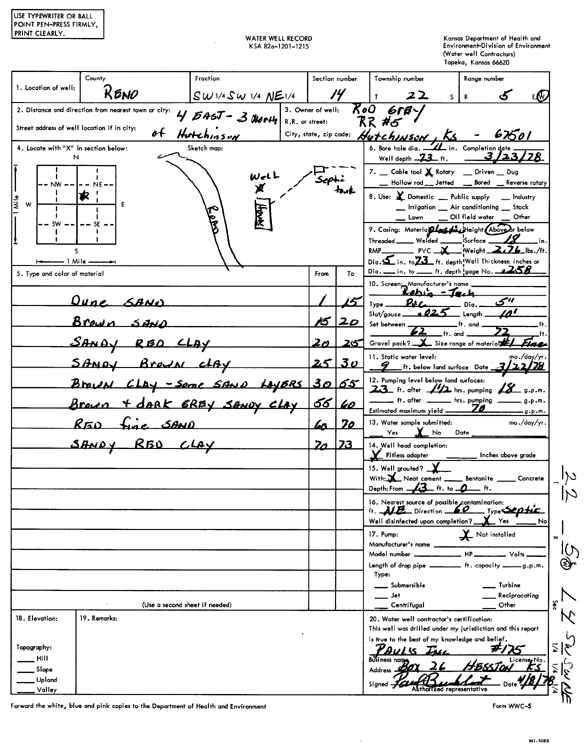 USE TYPEWRITER OR BALL
POINT PEN-PRESS FIRMLY,
PRINT CLEARLY.
WATER WELL RECORD
KSA 82a-1201-1215
Kansas Department of Health and
Environment-Division of Environment
(Water well Contractors)
Topeka, Kansas 66620
1. Location of well:
County
RENO
Fraction
SW 1/4 SW 1/4 NE 1/4
Section number
14
Township number
T 22 S
Range number
R 5 E W
2. Distance and direction from nearest town or city: 4 EAST - 3 North
Street address of well location if in city: of Hutchinson
3. Owner of well: ROD GREY
R.R. or street: RR #5
City, state, zip code: Hutchinson, Ks - 67501
4. Locate with "X" in section below:
Sketch map:
N
NW NE
W E
SW SE
S
1 Mile
1 Mile
Road
Well
X
House
Septic
tank
5. Type and color of material
From To
Dune SAND 1 15
Brown SAND 15 20
SANDY RED CLAY 20 25
SANDY Brown CLAY 25 30
Brown CLAY - Some SAND LAYERS 30 55
Brown + DARK GREY SANDY CLAY 55 60
RED fine SAND 60 70
SANDY RED CLAY 70 73
(Use a second sheet if needed)
6. Bore hole dia. 11 in. Completion date
Well depth 73 ft. 3/23/78
7. Cable tool X Rotary Driven Dug
Hollow rod Jetted Bored Reverse rotary
8. Use: X Domestic Public supply Industry
Irrigation Air conditioning Stock
Lawn Oil field water Other
9. Casing: Material plastic Height: Above or below
Threaded Welded Surface 18 in.
RMP PVC X Weight 2.76 lbs./ft.
Dia. 5 in. to 73 ft. depth Wall Thickness: inches or
Dia. in. to ft. depth gage No. .258
10. Screen: Manufacturer's name
Robin-Tech
Type PVC Dia. 5"
Slot/gauze .025 Length 10'
Set between ft. and ft.
62 ft. and 72 ft.
Gravel pack? X Size range of material #1 Fine
11. Static water level: mo./day/yr.
9 ft. below land surface Date 3/22/78
12. Pumping level below land surfaces:
23 ft. after 1 1/2 hrs. pumping 18 g.p.m.
ft. after hrs. pumping g.p.m.
Estimated maximum yield 70 g.p.m.
13. Water sample submitted: mo./day/yr.
Yes X No Date
14. Well head completion:
X Pitless adapter Inches above grade
15. Well grouted? X
With: X Neat cement Bentonite Concrete
Depth: From 13 ft. to 0 ft.
16. Nearest source of possible contamination:
ft. NE Direction 60 Type Septic
Well disinfected upon completion? X Yes No
17. Pump: X Not installed
Manufacturer's name
Model number HP Volts
Length of drop pipe ft. capacity g.p.m.
Type:
Submersible Turbine
Jet Reciprocating
Centrifugal Other
18. Elevation:
19. Remarks:
Topography:
Hill
Slope
Upland
Valley
20. Water well contractor's certification:
This well was drilled under my jurisdiction and this report
is true to the best of my knowledge and belief.
PAULS INC #175
Business name License No.
Address BOX 26 HESSTON KS
Signed Date 4/8/78
Authorized representative
Forward the white, blue and pink copies to the Department of Health and Environment
Form WWC-5
T 22 - R 5 W Sec 14 SW SW NE
1/4 1/4 1/4